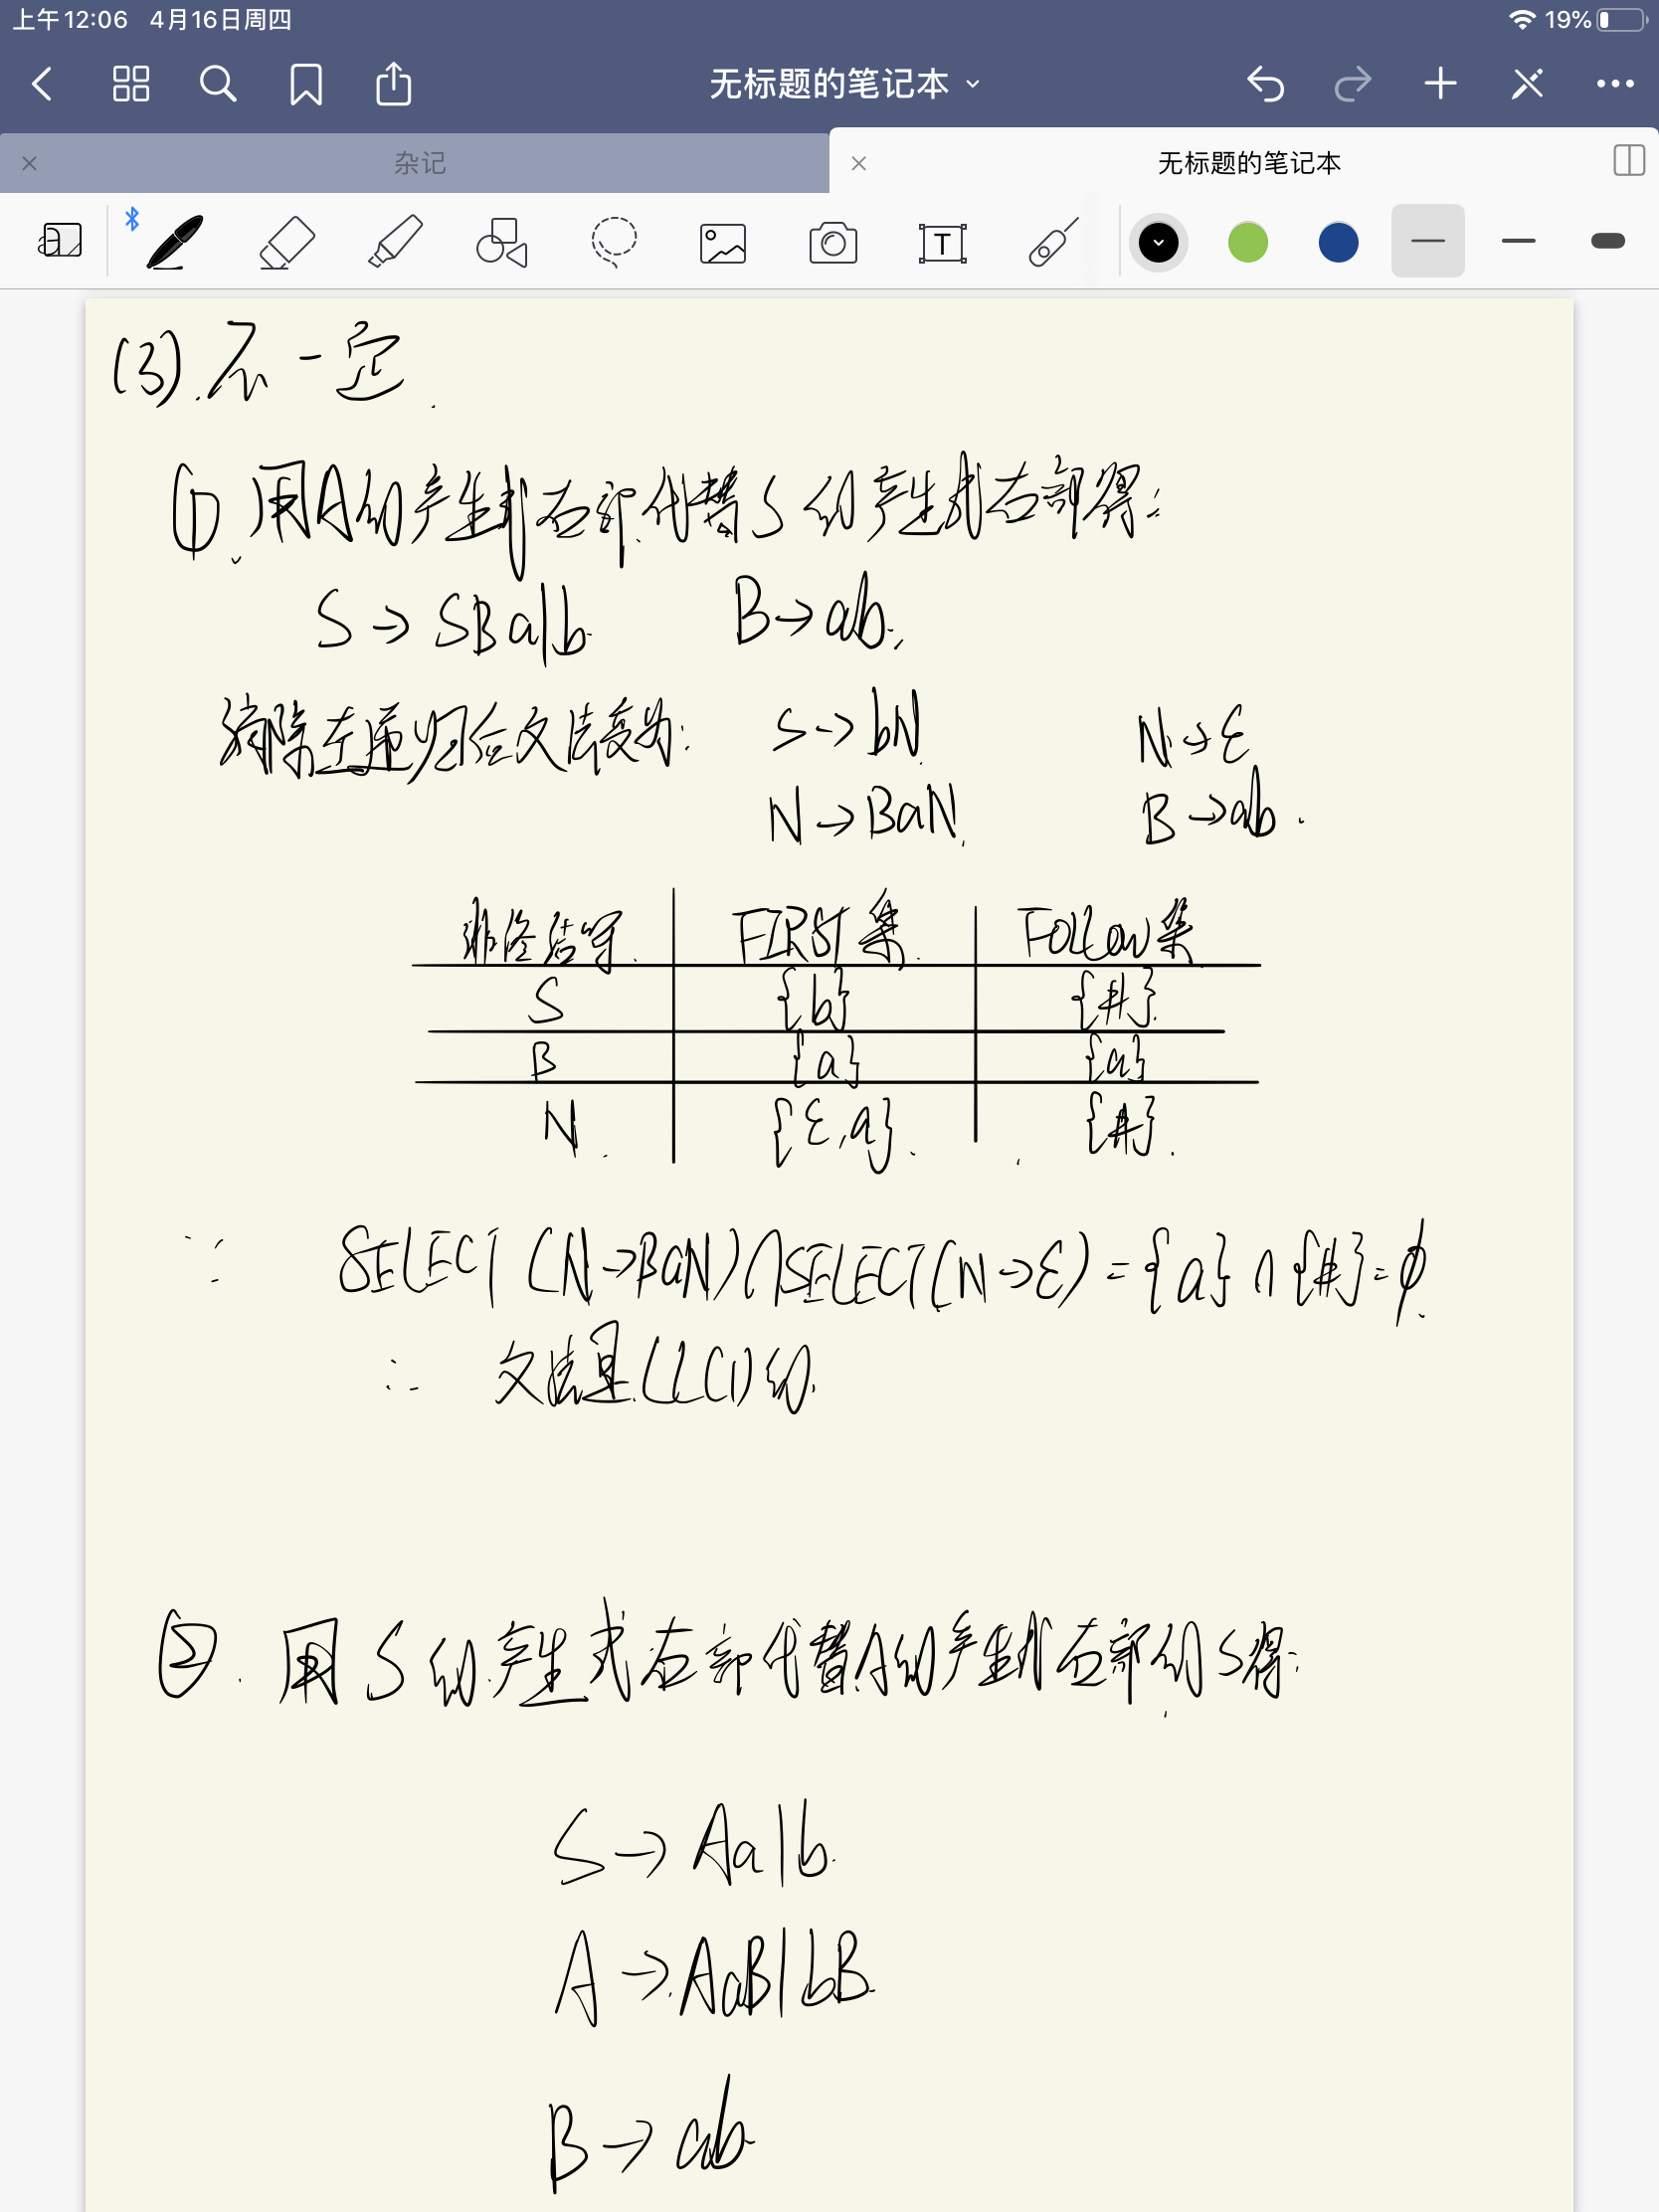 上午12:06 4月16日周四 19%
无标题的笔记本
杂记 无标题的笔记本
(3).不一定.
①.用A的产生式右部代替S的产生式右部得:
S→SBa|b. B→ab.
消除左递归后文法变为: S→bN N→ε
N→BaN. B→ab.
非终结符 FIRST集 FOLLOW集
S {b} {#}
B {a} {a}
N {ε,a} {#}
∵ SELECT(N→BaN)∩SELECT(N→ε)={a}∩{#}=ϕ
∴ 文法是LL(1)的.
②.用S的产生式右部代替A的产生式右部的S得:
S→Aa|b.
A→AaB|bB.
B→ab